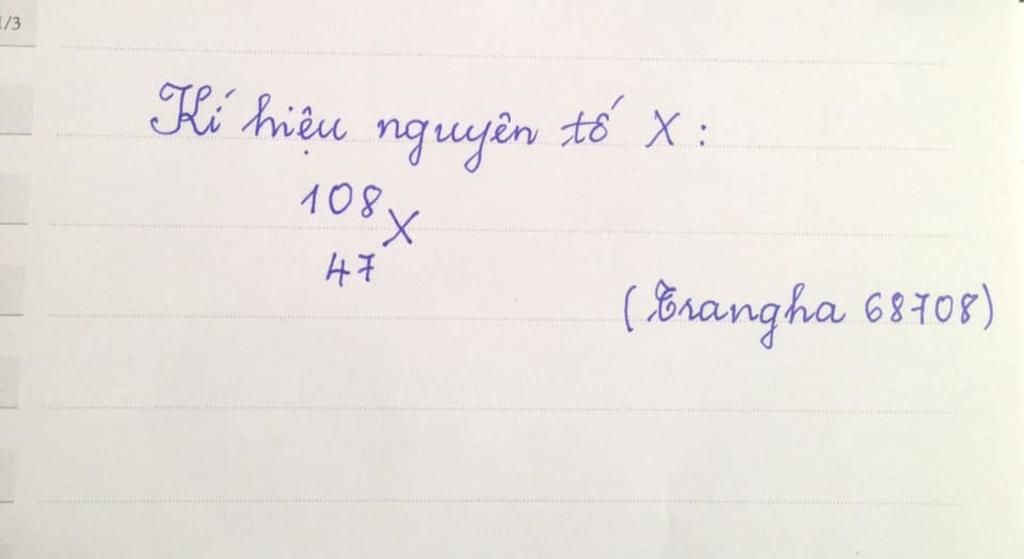 1/3
Kí hiệu nguyên tố X:
108
X
47
(Trangha 68708)